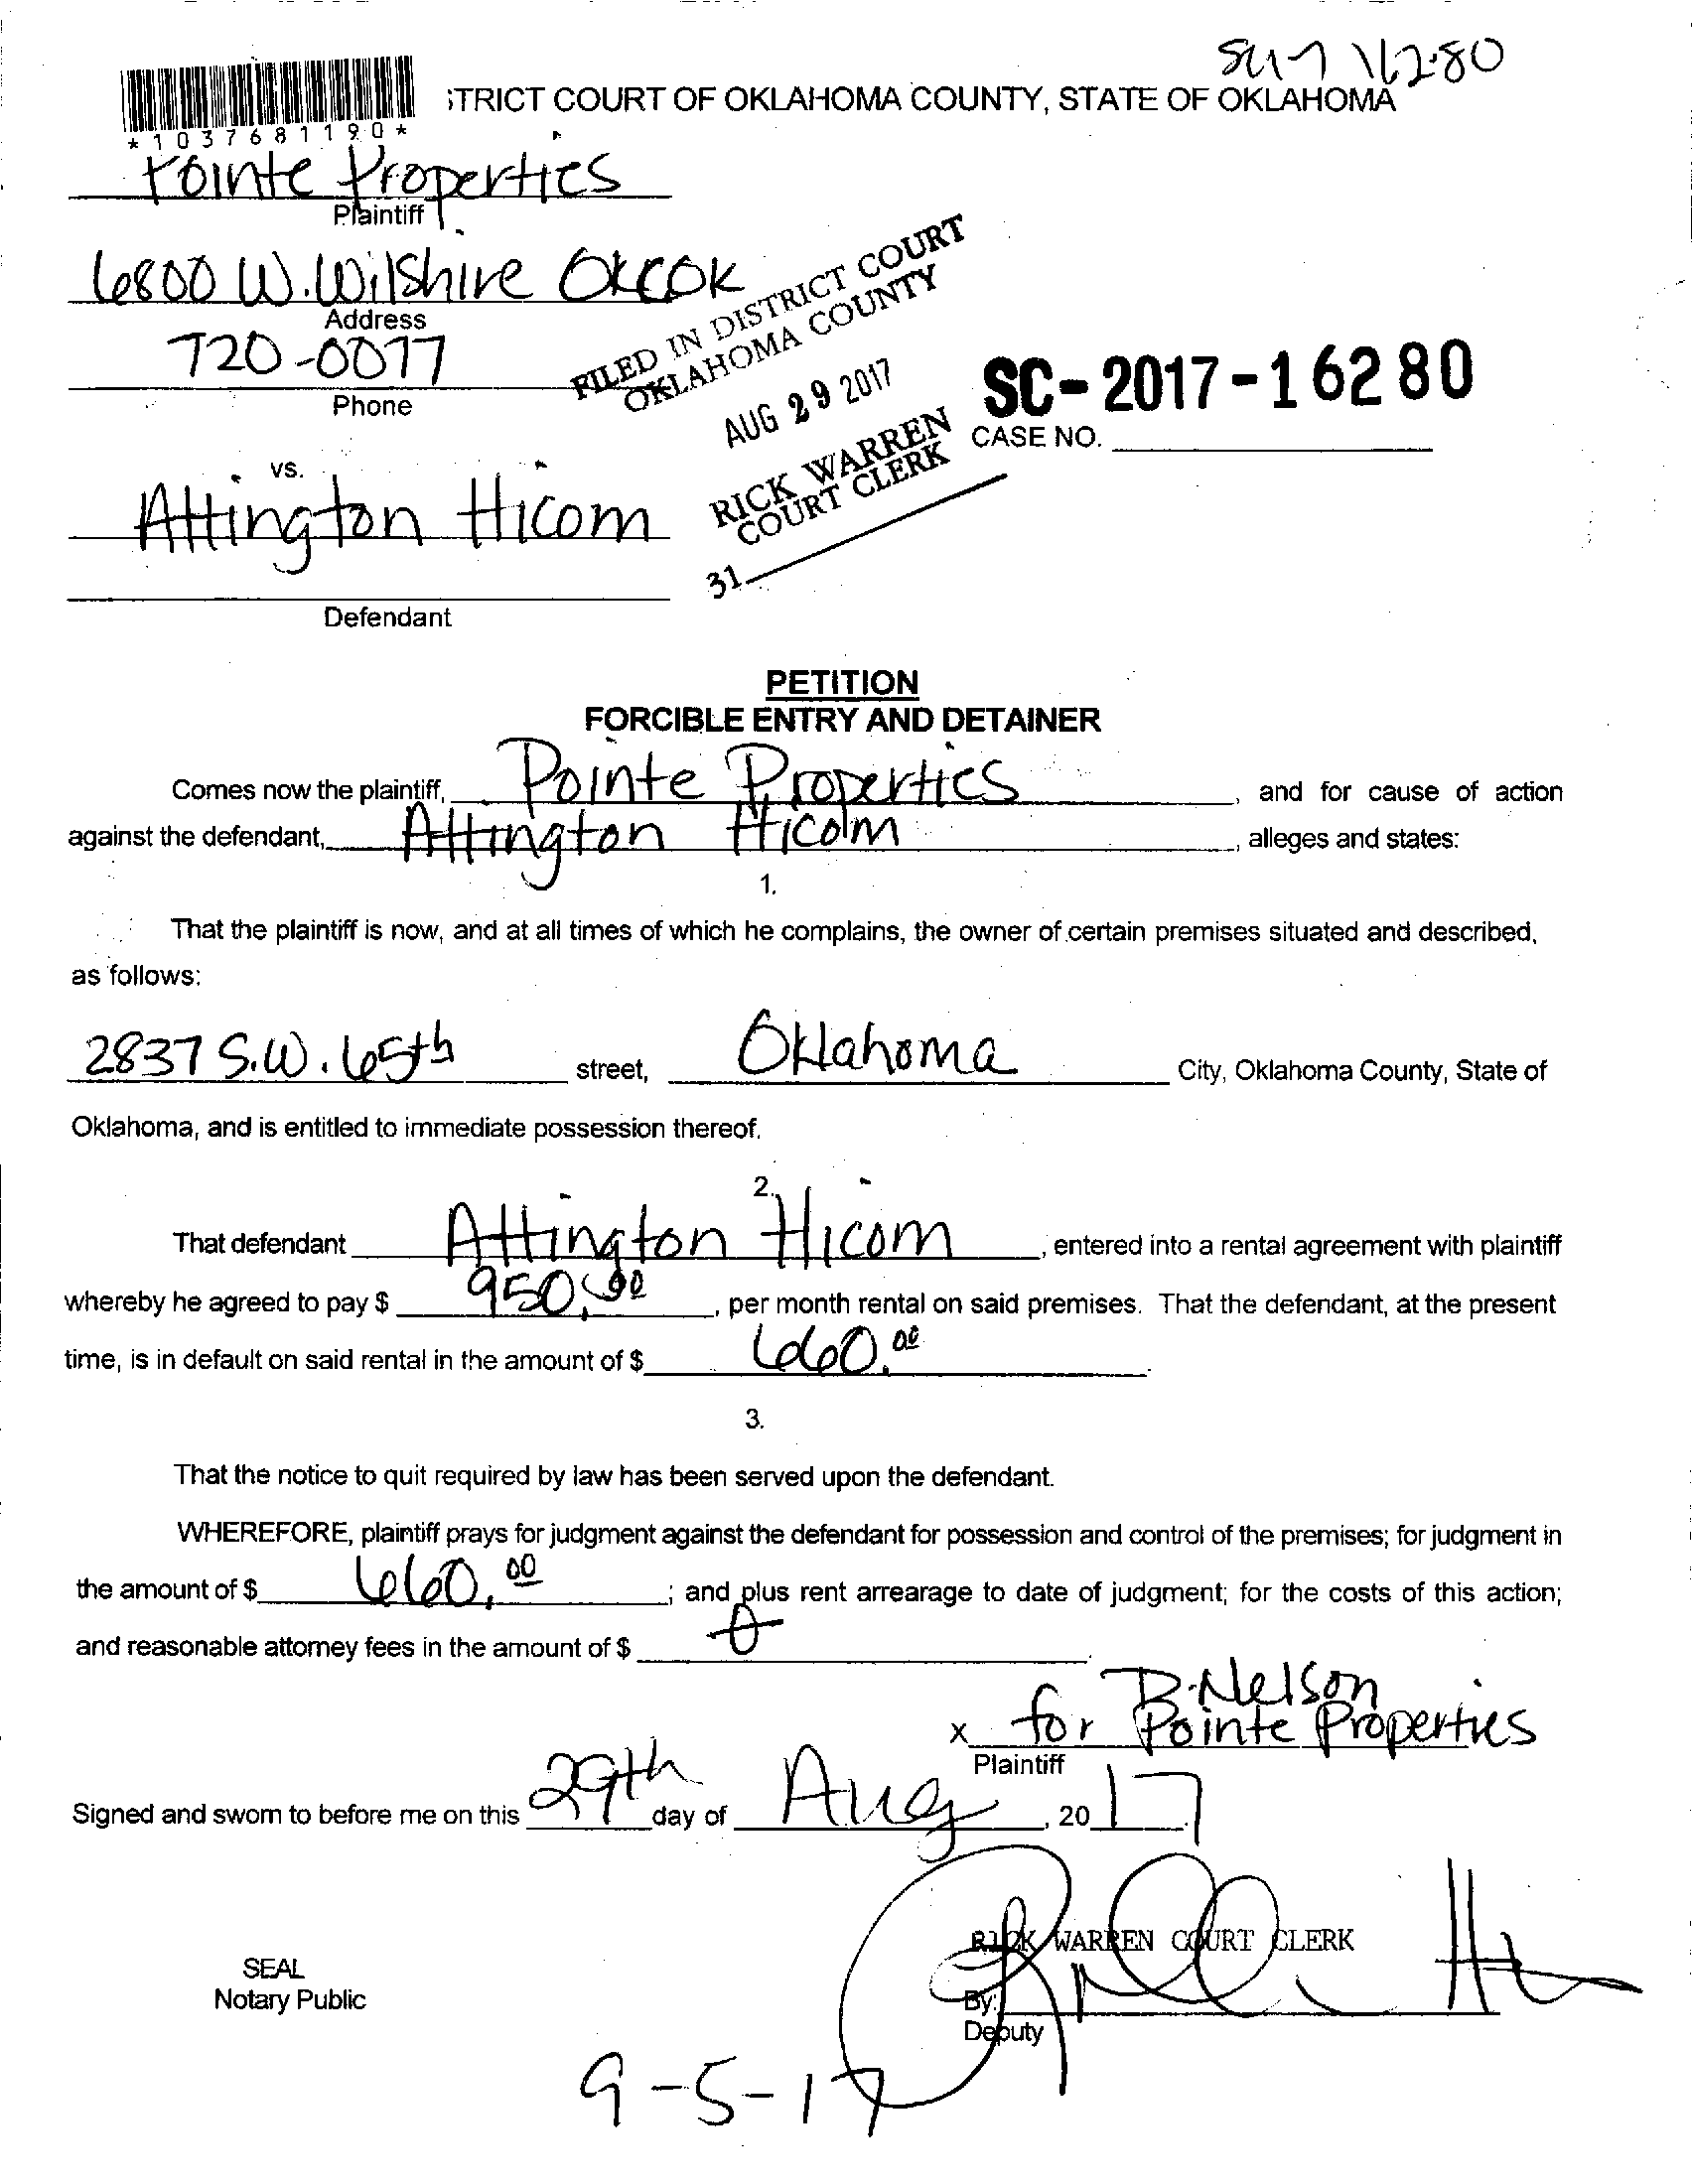 16280
STRICT COURT OF OKLAHOMA COUNTY, STATE OF OKLAHOMA
*1037681190*
Pointe Properties
Plaintiff
6800 W. Wilshire OKCOK
Address
720-0077
Phone
FILED IN DISTRICT COURT
OKLAHOMA COUNTY
AUG 29 2017
RICK WARREN
COURT CLERK
31
SC-2017-16280
CASE NO.
vs.
Attington Hicom
Defendant
PETITION
FORCIBLE ENTRY AND DETAINER
Comes now the plaintiff, Pointe Properties, and for cause of action
against the defendant, Attington Hicom, alleges and states:
1.
That the plaintiff is now, and at all times of which he complains, the owner of certain premises situated and described,
as follows:
2837 S.W. 65th street, Oklahoma City, Oklahoma County, State of
Oklahoma, and is entitled to immediate possession thereof.
2.
That defendant Attington Hicom, entered into a rental agreement with plaintiff
whereby he agreed to pay $ 950.00, per month rental on said premises. That the defendant, at the present
time, is in default on said rental in the amount of $ 660.00
3.
That the notice to quit required by law has been served upon the defendant.
WHEREFORE, plaintiff prays for judgment against the defendant for possession and control of the premises; for judgment in
the amount of $ 660.00; and plus rent arrearage to date of judgment; for the costs of this action;
and reasonable attorney fees in the amount of $ 0
B. Nelson
x for Pointe Properties
Plaintiff
Signed and sworn to before me on this 29th day of Aug, 2017.
RICK WARREN COURT CLERK
SEAL
Notary Public
By:
Deputy
9-5-17